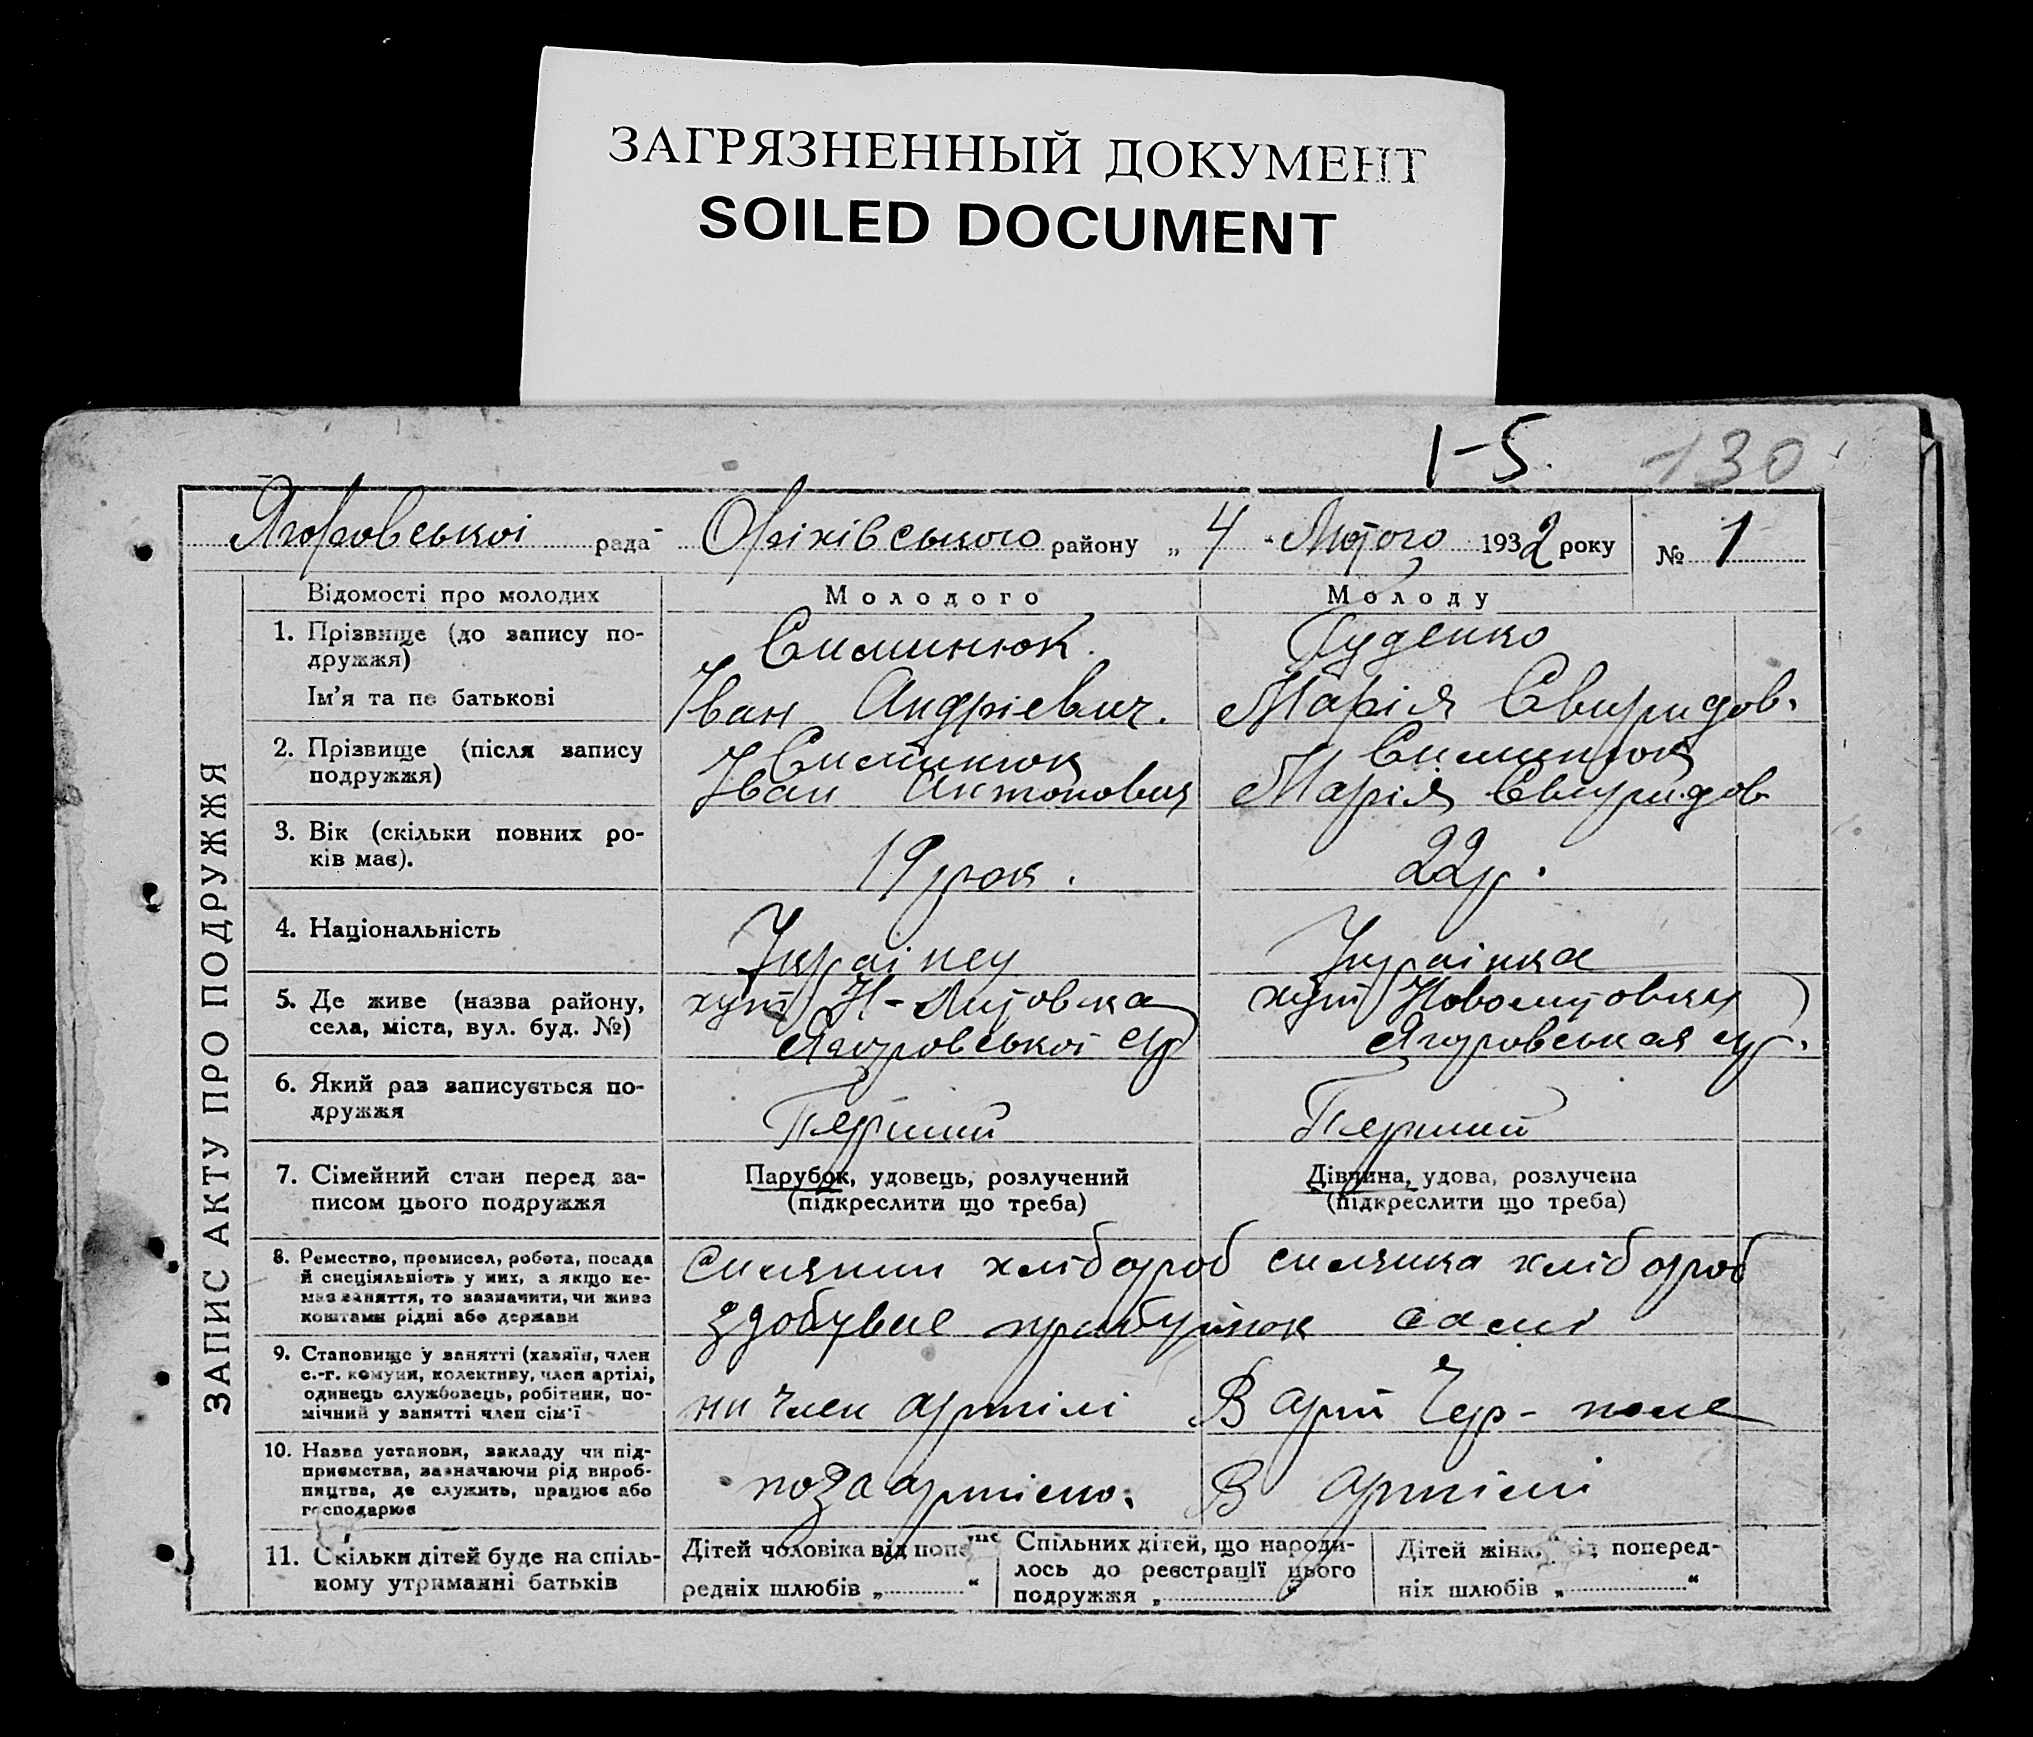 ЗАГРЯЗНЕННЫЙ ДОКУМЕНТ
SOILED DOCUMENT
1-5. 130
ЗАПИС АКТУ ПРО ПОДРУЖЖЯ
Ягоровської рада Оріхівського району „ 4 “ Лютого 1932 року № 1
Відомості про молодих Молодого Молоду
1. Прізвище (до запису по-
дружжя)
Симинюк. Гуденко
Ім'я та по батькові Іван Андрієвич. Марія Свиридов.
2. Прізвище (після запису
подружжя)
Симинюк Симинюк
Іван Антонович Марія Свиридов
3. Вік (скільки повних ро-
ків має).
19 рок. 22 р.
4. Національність Українец Українка
5. Де живе (назва району,
села, міста, вул. буд. №)
хут Н-
Ягоровської ср хут
Ягоровськая ср.
6. Який раз записується по-
дружжя
Перший Перший
7. Сімейний стан перед за-
писом цього подружжя
Парубок, удовець, розлучений
(підкреслити що треба)
Дівчина, удова, розлучена
(підкреслити що треба)
8. Ремество, промисел, робота, посада
й спеціяльність у них, а якщо не-
має заняття, то зазначити, чи живе
коштами рідні або держави
хлібороб силянка хлібороб
здобуває прибуток самі
9. Становище у занятті (хазяїн, член
с.-г. комуни, колективу, член артілі,
одинець службовець, робітник, по-
мічний у занятті член сім'ї
ни член артілі В арт Чер- поле
10. Назва установи, закладу чи під-
приємства, зазначаючи рід вироб-
ництва, де служить, працює або
господарює
поза артілю. В артілі
11. Скільки дітей буде на спіль-
ному утриманні батьків
Дітей чоловіка від попе-
редніх шлюбів „ “
Спільних дітей, що народи-
лось до реєстрації цього
подружжя „ “
Дітей жінки від поперед-
ніх шлюбів „ “